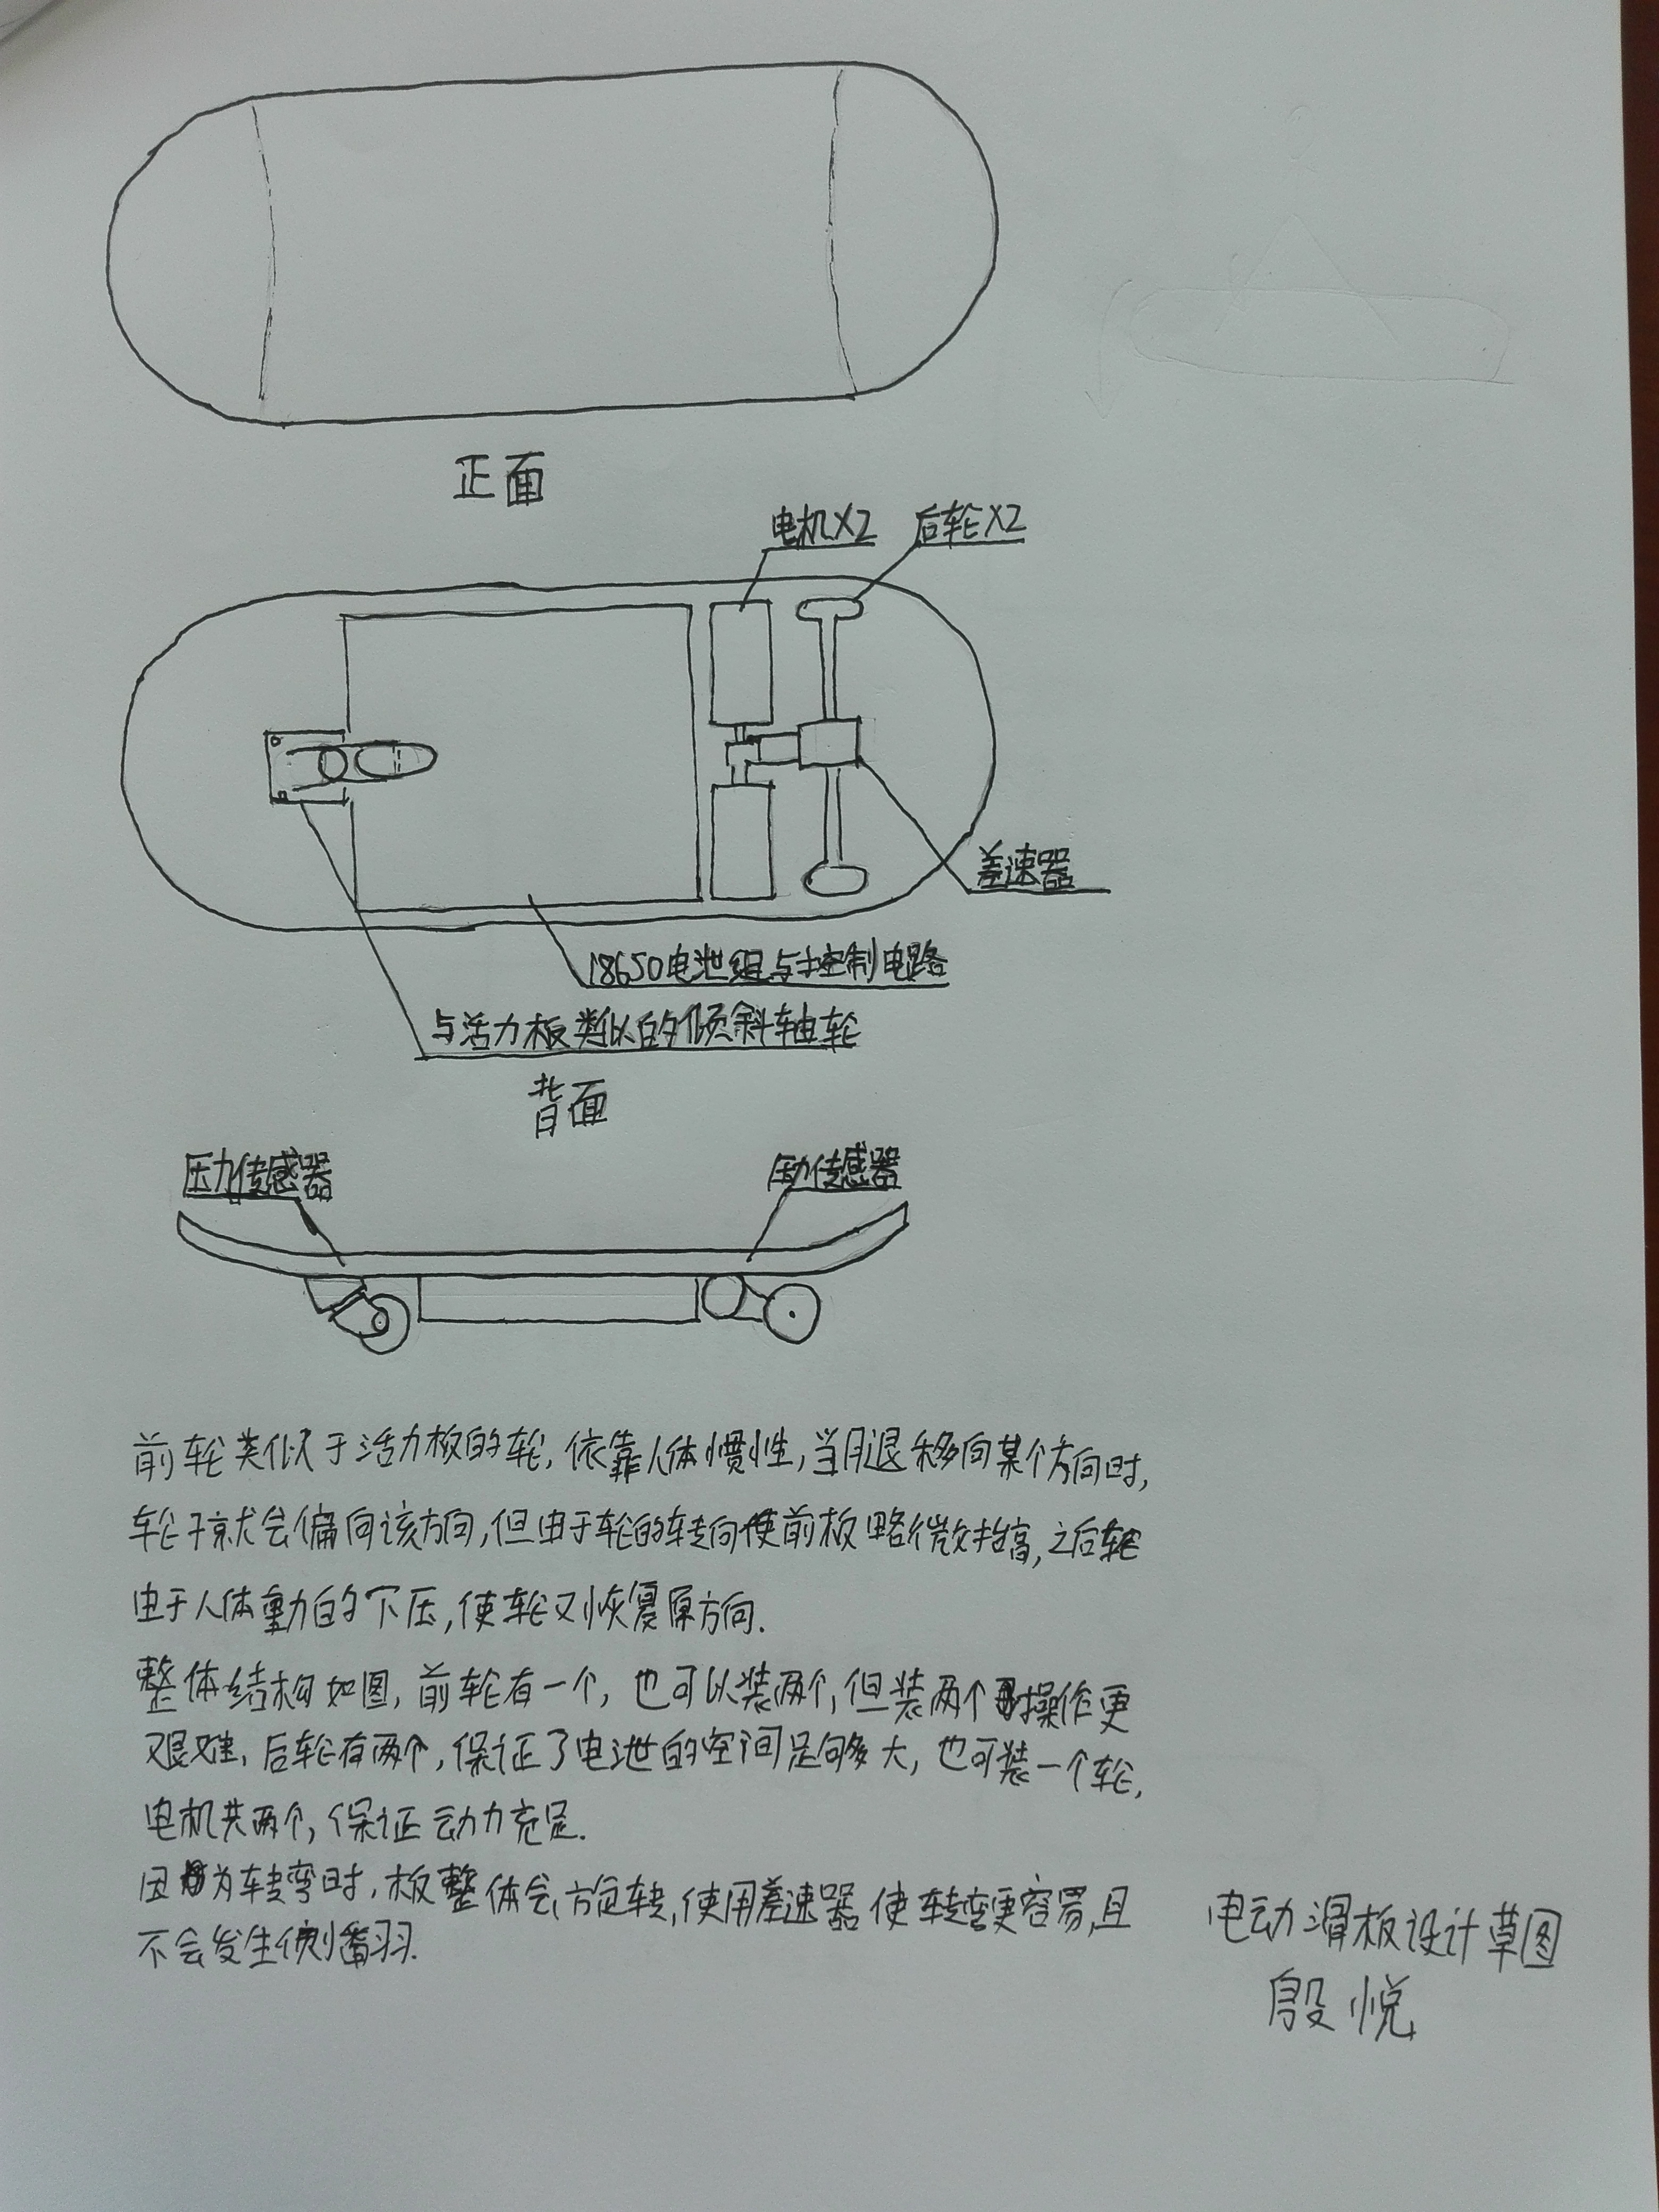 正面
电机X2
后轮X2
差速器
18650电池组与控制电路
与活力板类似的倾斜轴轮
背面
压力传感器
压力传感器
前轮类似于活力板的轮,依靠人体惯性,当腿移向某个方向时,
轮子就会偏向该方向,但由于轮的转向使前板略微抬高,之后轮
由于人体重力的下压,使轮又恢复原方向.
整体结构如图,前轮有一个,也可以装两个,但装两个操作更
艰难,后轮有两个,保证了电池的空间足够大,也可装一个轮,
电机共两个,保证动力充足.
因为转弯时,板整体会旋转,使用差速器使转弯更容易,且
不会发生侧翻.
电动滑板设计草图
殷悦